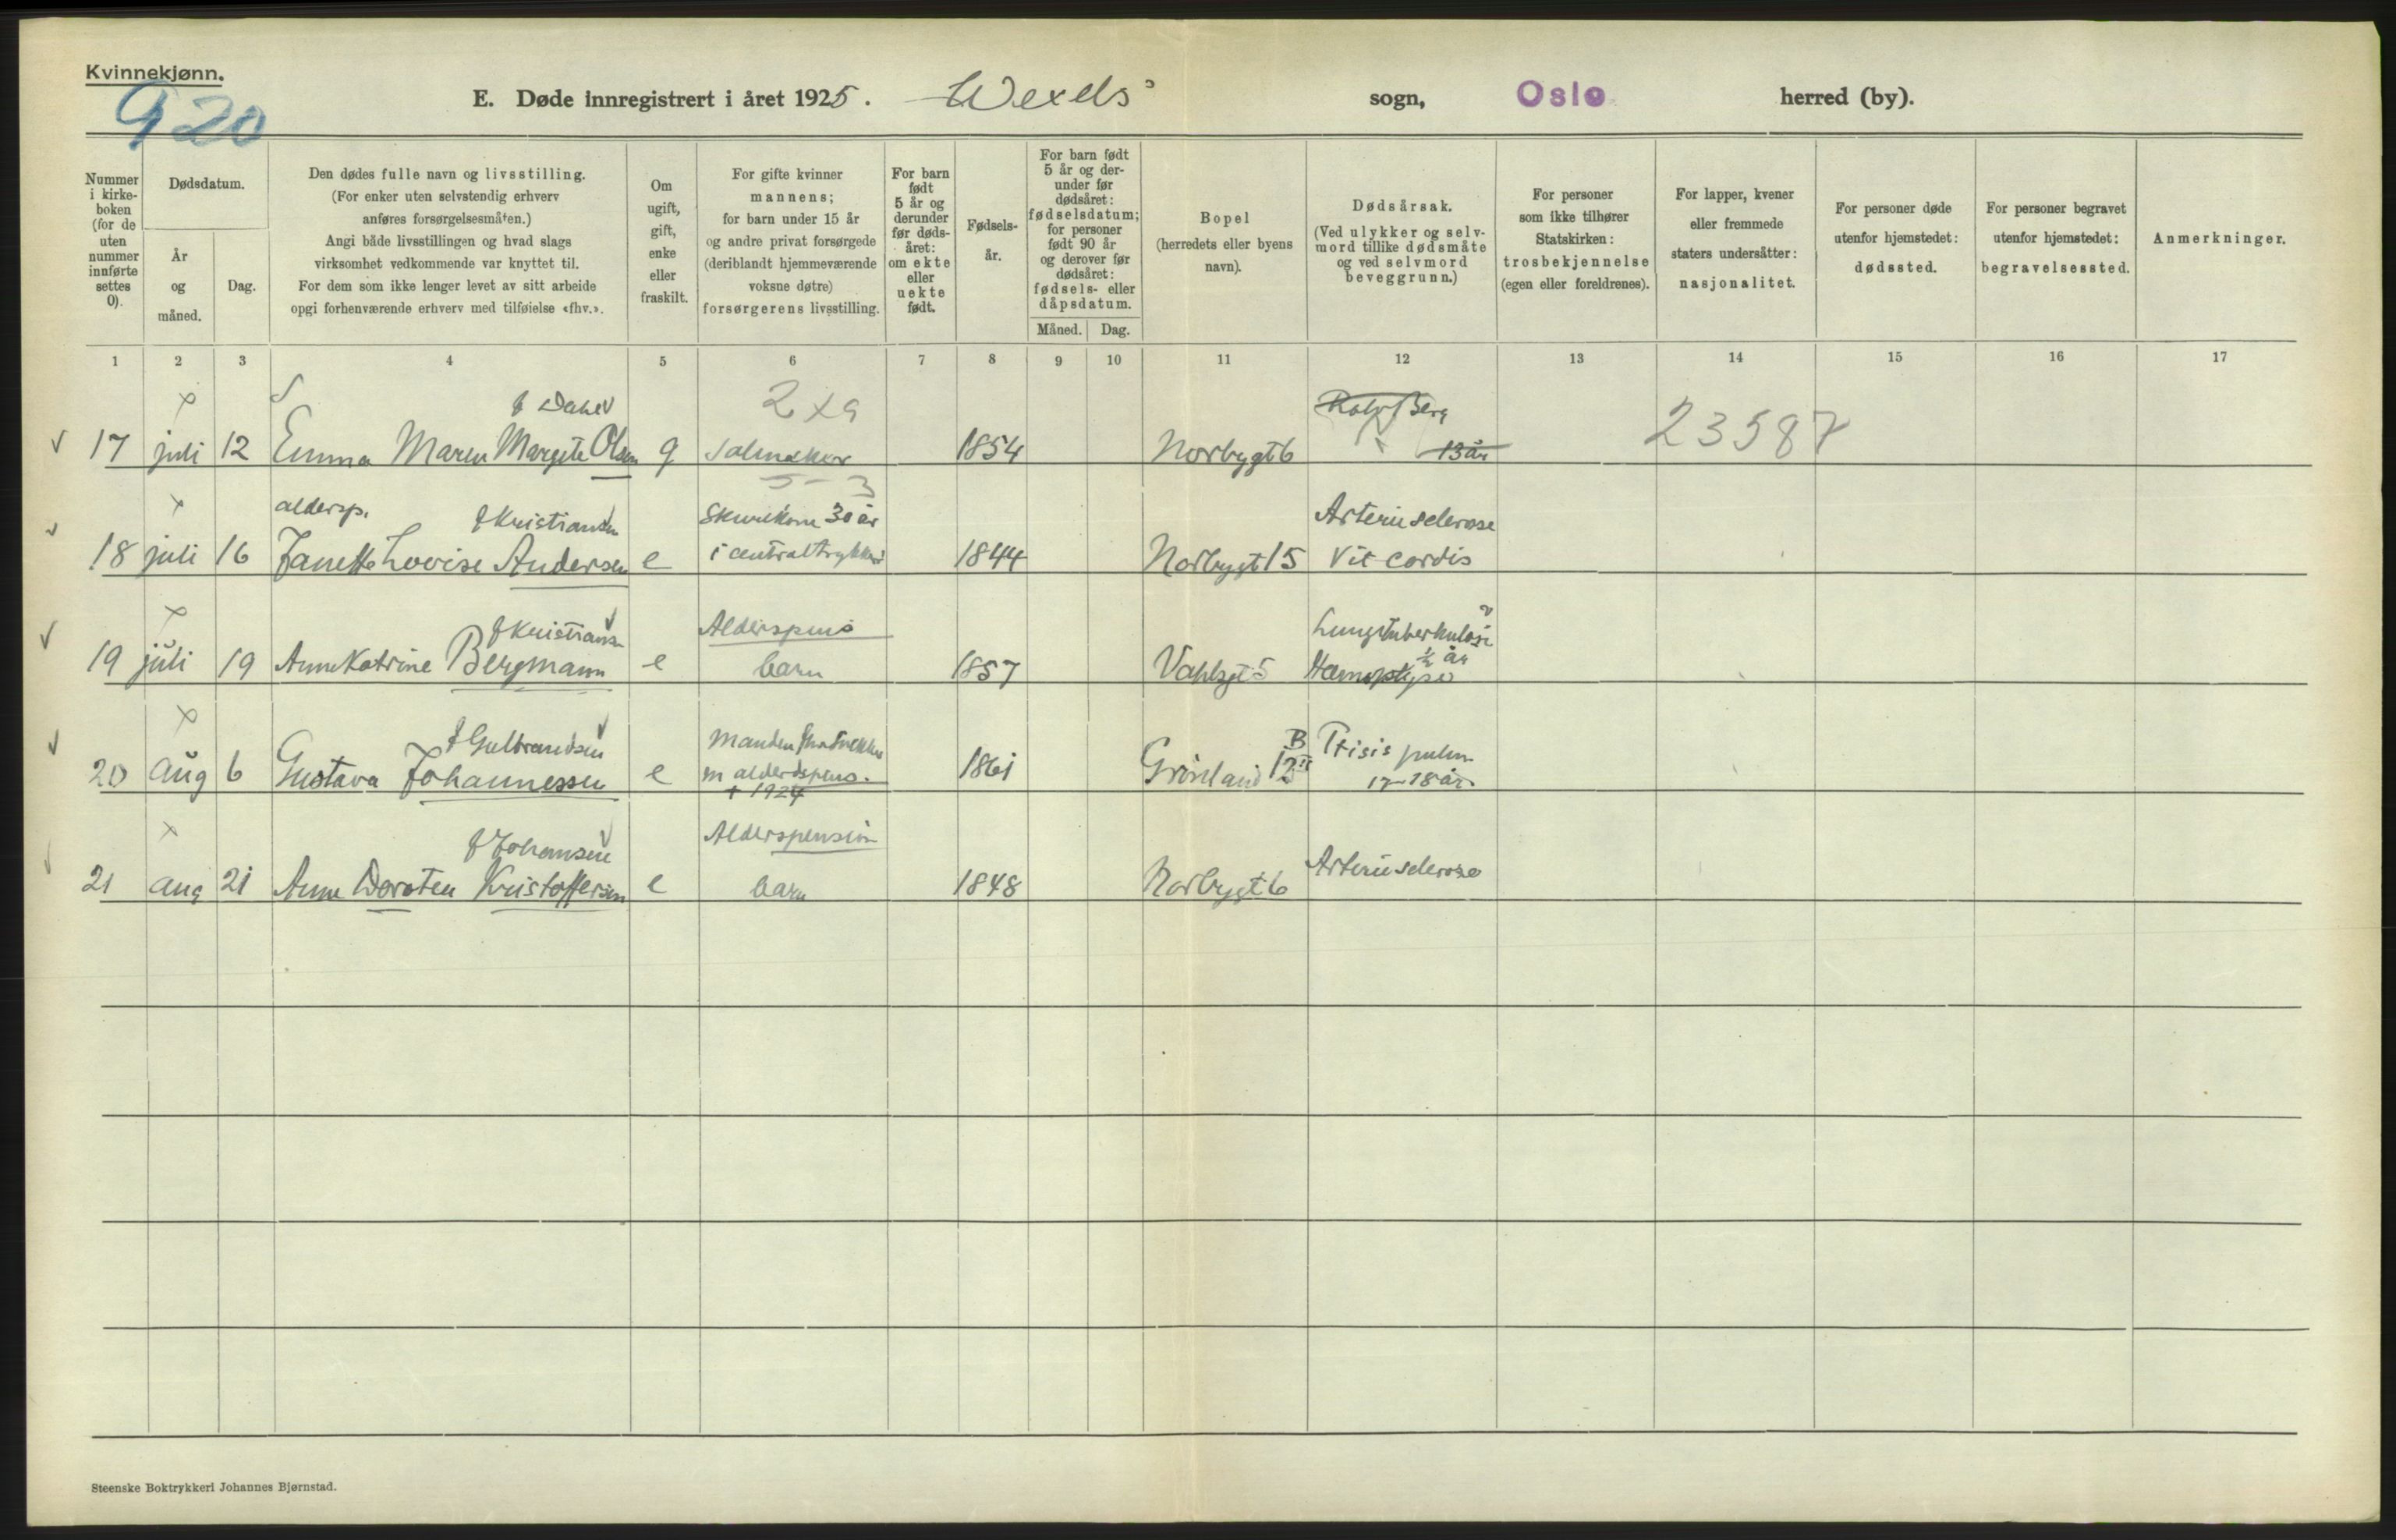 Kvinnekjønn.
920
E. Døde innregistrert i året 1925. Wexels sogn, Oslo herred (by).
Nummer i kirke- boken (for de uten nummer innførte settes 0).
Dødsdatum.
År og måned.
Dag.
Den dødes fulle navn og livsstilling.
(For enker uten selvstendig erhverv
anføres forsørgelsesmåten.)
Angi både livsstillingen og hvad slags
virksomhet vedkommende var knyttet til.
For dem som ikke lenger levet av sitt arbeide
opgi forhenværende erhverv med tilføielse «fhv.».
Om ugift, gift, enke eller fraskilt.
For gifte kvinner
mannens;
for barn under 15 år
og andre privat forsørgede
(deriblandt hjemmeværende
voksne døtre)
forsørgerens livsstilling.
For barn født 5 år og derunder før døds- året: om ekte eller uekte født.
Fødsels- år.
For barn født 5 år og der- under før dødsåret: fødselsdatum; for personer født 90 år og derover før dødsåret: fødsels- eller dåpsdatum.
Måned. Dag.
Bopel
(herredets eller byens
navn).
Dødsårsak.
(Ved ulykker og selv-
mord tillike dødsmåte
og ved selvmord
beveggrunn.)
For personer
som ikke tilhører
Statskirken:
trosbekjennelse
(egen eller foreldrenes).
For lapper, kvener
eller fremmede
staters undersåtter:
nasjonalitet.
For personer døde
utenfor hjemstedet:
dødssted.
For personer begravet
utenfor hjemstedet:
begravelsessted.
Anmerkninger.
1 2 3 4 5 6 7 8 9 10 11 12 13 14 15 16 17
f Dahl 2 x 9 Berg
17 juli 12 Emma Maren Margite Olsen g Salmaker 1854 Norbygt 6 13 år 23587
5 - 3
aldersp. f Kristiansen Skurekone 30 år Arteriesclerose
18 juli 16 Janette Lovise Andersen e i centraltrykkeri 1844 Norbygt 15 Vit cordis
f Kristians Alderspens Lungetuberkulose
19 juli 19 Anne Katrine Bergmann e barn 1857 Vahlsgt 5 Hæmoptyse ½ år
f Gulbrandsen Manden B Ptisis pulm
20 aug 6 Gustava Johannessen e m alderdspens. 1861 Grønland 12 II 17-18 år
+ 1924
f Johansen Alderspension
21 aug 21 Anne Doroten Kristoffersen e barn 1848 Norbygt 6 Arteriesclerose
Steenske Boktrykkeri Johannes Bjørnstad.